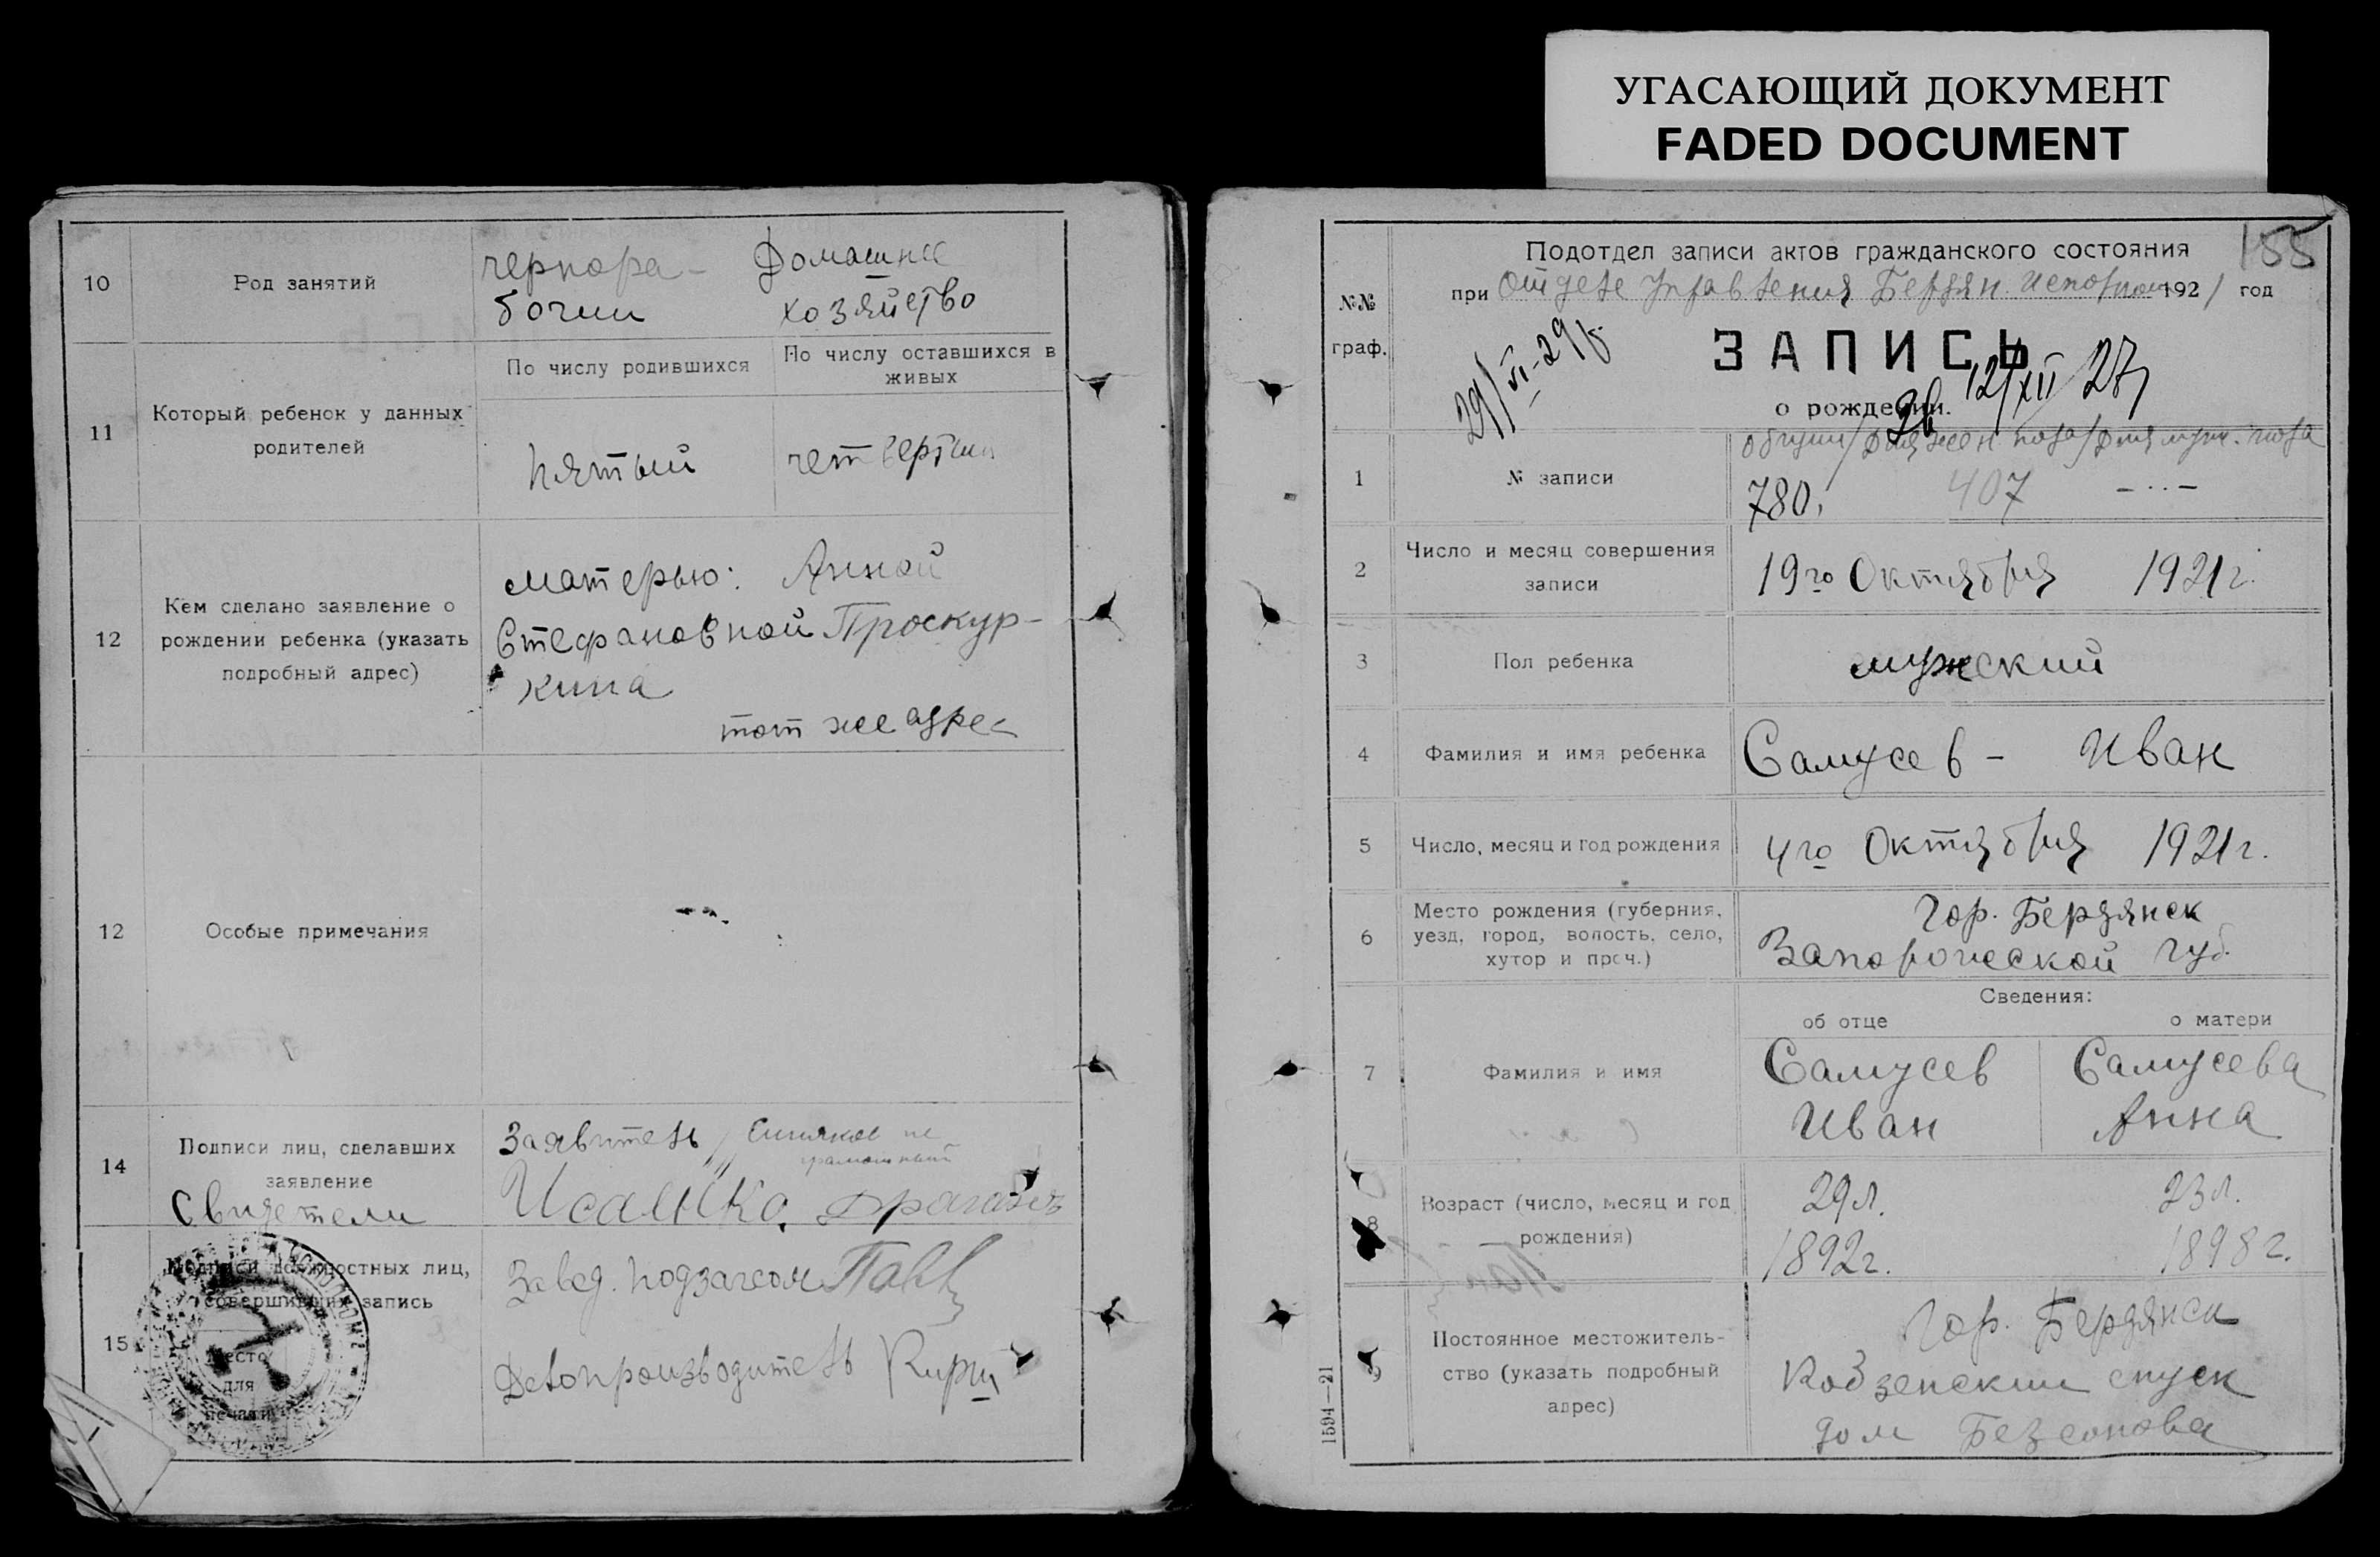 УГАСАЮЩИЙ ДОКУМЕНТ
FADED DOCUMENT
10
Род занятий
чернора-
бочий
Домашнее
хозяйство
11
Который ребенок у данных
родителей
По числу родившихся
По числу оставшихся в
живых
пятый
четвертый
12
Кем сделано заявление о
рождении ребенка (указать
подробный адрес)
матерью: Анной
Стефановной Проскур-
кина
тот же адрес
12
Особые примечания
14
Подписи лиц, сделавших
заявление
Свидетели
Заявитель
грамотный
15
Подписи должностных лиц,
совершивших запись
Место
для
печати
Завед. подзагсом
Делопроизводитель
155
№№
граф.
Подотдел записи актов гражданского состояния
при Отделе Управления Бердян. Исполком 1921 год
ЗАПИСЬ
о рождении.
29/VI-29
12/XII 27
1
№ записи
общий/для жен. пола/для муж. пола
780.
407
-··-
2
Число и месяц совершения
записи
19го Октября 1921г.
3
Пол ребенка
мужский
4
Фамилия и имя ребенка
Самусев - Иван
5
Число, месяц и год рождения
4го Октября 1921г.
6
Место рождения (губерния,
уезд, город, волость, село,
хутор и проч.)
Гор. Бердянск
Запорожеской губ.
Сведения:
об отце
о матери
7
Фамилия и имя
Самусев
Иван
Самусева
Анна
8
Возраст (число, месяц и год
рождения)
29л.
1892г.
23л.
1898г.
9
Постоянное местожитель-
ство (указать подробный
адрес)
Гор. Бердянск
спуск
дом Безсонова
1594—21